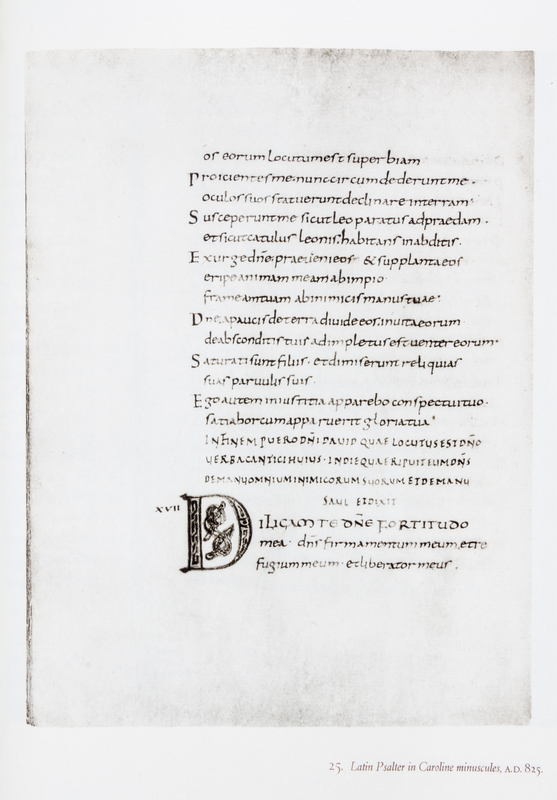 os eorum locutum est superbiam
Proicientes me nunc circumdederunt me.
oculos suos statuerunt declinare interram.
Susceperunt me sicut leo paratus ad praedam.
et sicut catulus leonis. habitans in abditis.
Exurge dn̄e. praeuenieos & supplanta eos
eripe animam meam ab impio.
frameam tuam ab inimicis manus tuae.
Dn̄e. a paucis de terra diuide eos. in uita eorum
de absconditis tuis adimpletus est uenter eorum.
Saturati sunt filiis. et dimiserunt reliquias
suas paruulis suis.
Ego autem in iustitia apparebo conspectui tuo.
satiabor cum apparuerit gloria tua.
IN FINEM PUERO DN̄I DAUID QUAE LOCUTUS EST DN̄O
UERBA CANTICI HUIUS. IN DIE QUA ERIPUIT EUM DN̄S
DE MANU OMNIUM INIMICORUM SUORUM ET DE MANU
SAUL ET DIXIT
XVII DILIGAM TE DN̄E FORTITUDO
mea. dn̄s firmamentum meum. et re
fugium meum. et liberator meus.
25. Latin Psalter in Caroline minuscules, A.D. 825.